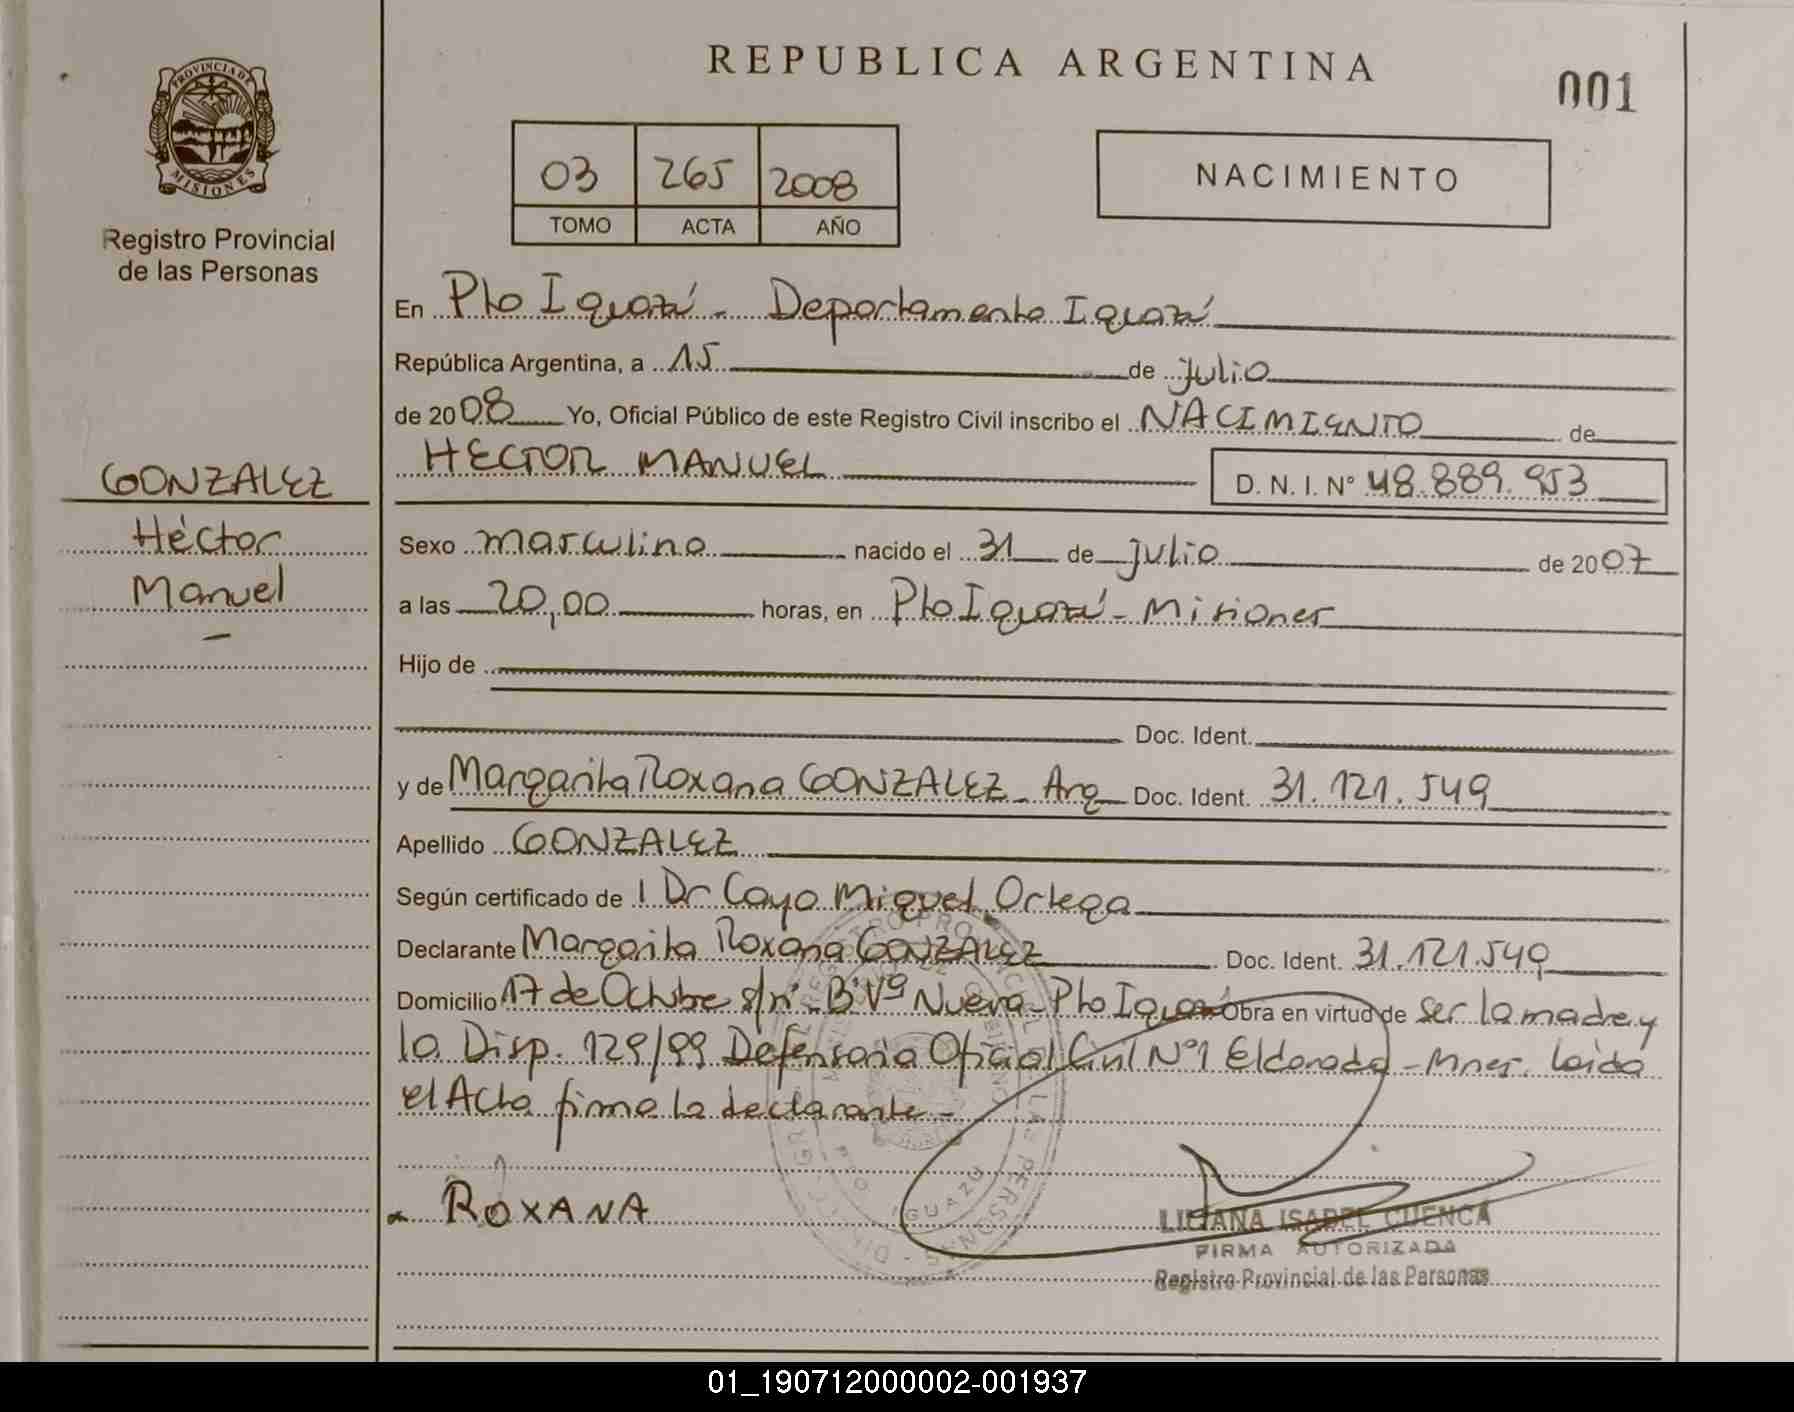 REPUBLICA ARGENTINA
001
PROVINCIA DE
MISIONES
Registro Provincial
de las Personas
03 265 2008
TOMO ACTA AÑO
NACIMIENTO
En Pto Iguazú - Departamento Iguazú
República Argentina, a 15 de julio
de 2008 Yo, Oficial Público de este Registro Civil inscribo el NACIMIENTO de
HECTOR MANUEL D. N. I. N° 48.889.953
GONZALEZ
Héctor
Manuel
Sexo masculino nacido el 31 de julio de 2007
a las 20,00 horas, en Pto Iguazú - Misiones
Hijo de
Doc. Ident.
y de Margarita Roxana GONZALEZ - Arg Doc. Ident. 31.121.549
Apellido GONZALEZ
Según certificado de l Dr Cayo Miguel Ortega
Declarante Margarita Roxana GONZALEZ Doc. Ident. 31.121.549
Domicilio 17 de Octubre s/nº - Bº Vª Nueva - Pto Iguazú Obra en virtud de ser la madre y
la Disp. 129/99 Defensoria Oficial Civil Nº1 Eldorado - Mnes. Leida
el Acta firma la declarante -
ROXANA
LILIANA ISABEL CUENCA
FIRMA AUTORIZADA
Registro Provincial de las Personas
01_190712000002-001937